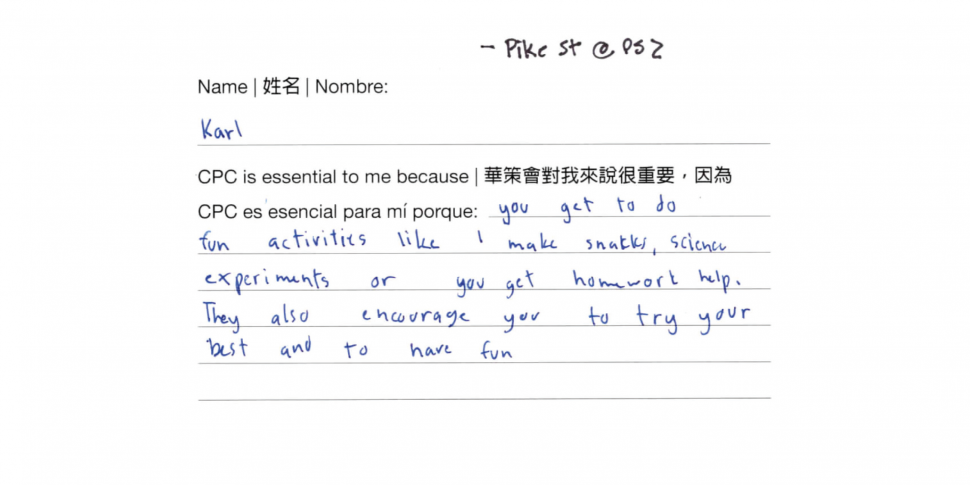 - Pike st @ PS2
Name | 姓名 | Nombre:
Karl
CPC is essential to me because | 華策會對我來說很重要，因為
CPC es esencial para mí porque: you get to do
fun activities like I make snakks, science
experiments or you get homework help.
They also encourage you to try your
best and to have fun